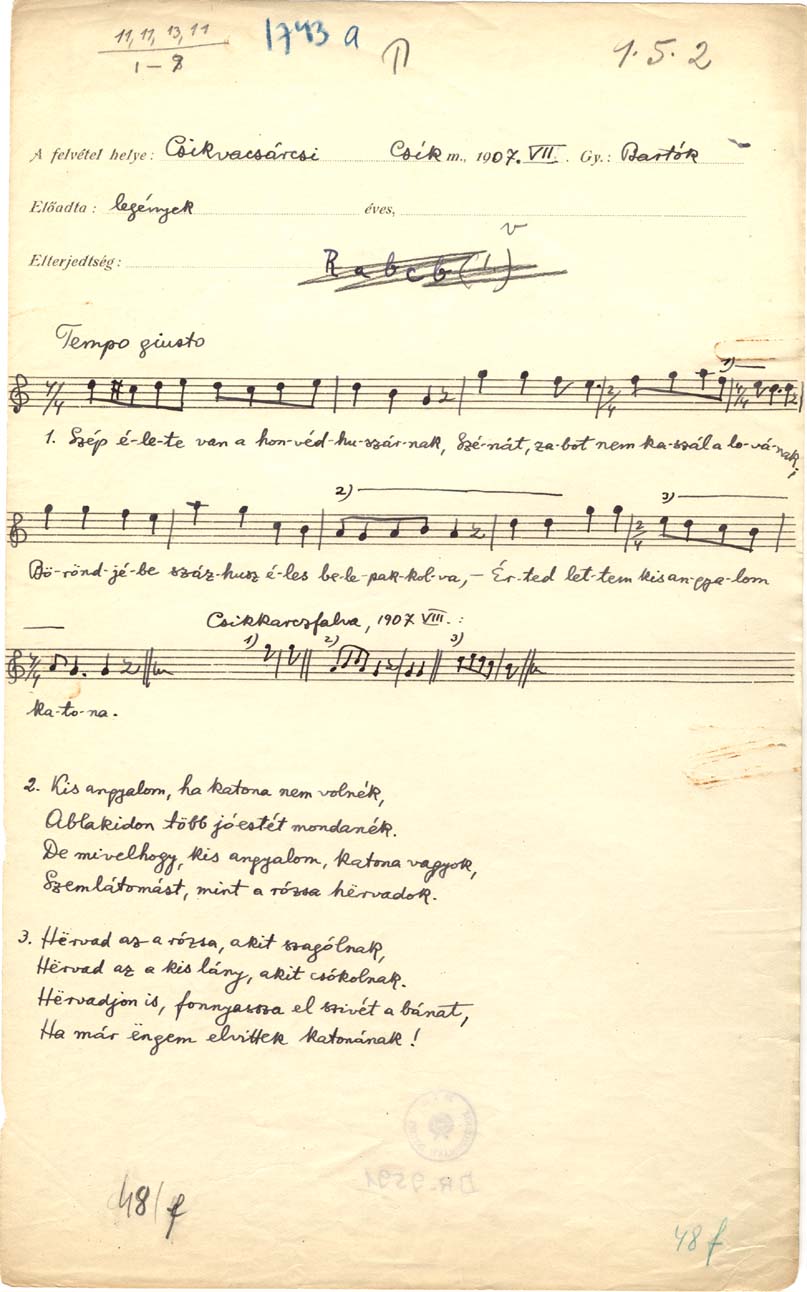 11, 11, 13, 11
1-8
1743 a
1.5.2
A felvétel helye: Csikvacsárcsi Csík m., 1907. VII. Gy.: Bartók
Előadta: legények éves,
Elterjedtség:
Tempo giusto
1)
1. Szép é-le-te van a hon-véd-hu-szár-nak, Szé-nát, za-bot nem ka-szál a lo-vá-nak;
2) 3)
Bö-rönd-jé-be száz-husz é-les be-le-pak-kol-va, – Ér-ted let-tem kis an-gya-lom
Csikkarczfalva, 1907 VIII.:
1) 2) 3)
ka-to-na.
2. Kis angyalom, ha katona nem volnék,
Ablakidon több jóestét mondanék.
De mivelhogy, kis angyalom, katona vagyok,
Szemlátomást, mint a rózsa hërvadok.
3. Hërvad az a rózsa, akit szagólnak,
Hërvad az a kis lány, akit csókolnak.
Hërvadjon is, fonnyassza el szivét a bánat,
Ha már ëngem elvittek katonának!
48/f
48 f